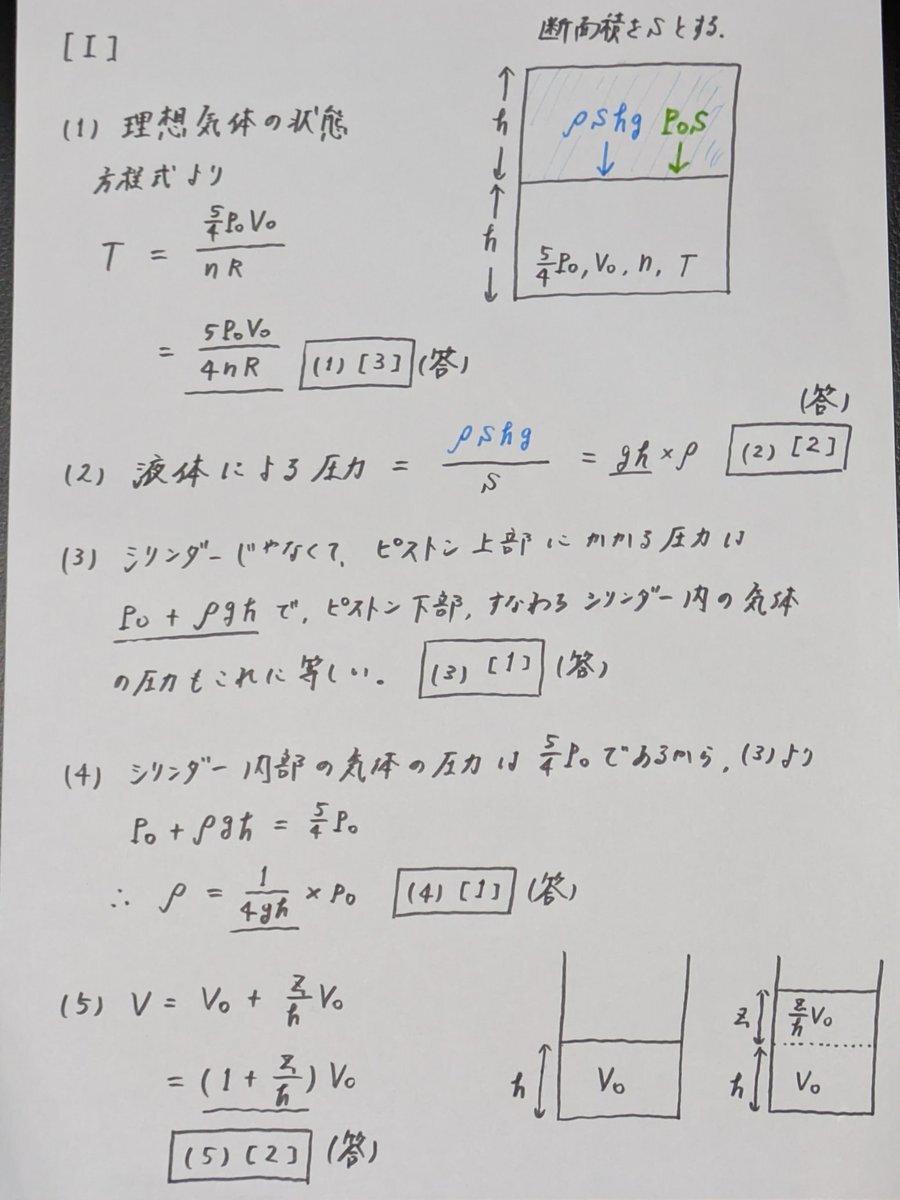 [I]
断面積をSとする.
(1) 理想気体の状態
方程式より
T = \frac{\frac{5}{4}P₀V₀}{nR}
= \frac{5P₀V₀}{4nR} (1)[3] (答)
h ρShg P₀S
h \frac{5}{4}P₀, V₀, n, T
(答)
(2) 液体による圧力 = \frac{ρShg}{S} = gh×ρ (2)[2]
(3) シリンダーじゃなくて, ピストン上部にかかる圧力は
P₀ + ρgh で, ピストン下部, すなわちシリンダー内の気体
の圧力もこれに等しい. (3)[1] (答)
(4) シリンダー内部の気体の圧力は \frac{5}{4}P₀ であるから, (3)より
P₀ + ρgh = \frac{5}{4}P₀
∴ ρ = \frac{1}{4gh} × P₀ (4)[1] (答)
(5) V = V₀ + \frac{z}{h}V₀
= (1 + \frac{z}{h})V₀
(5)[2] (答)
h V₀
z \frac{z}{h}V₀
h V₀